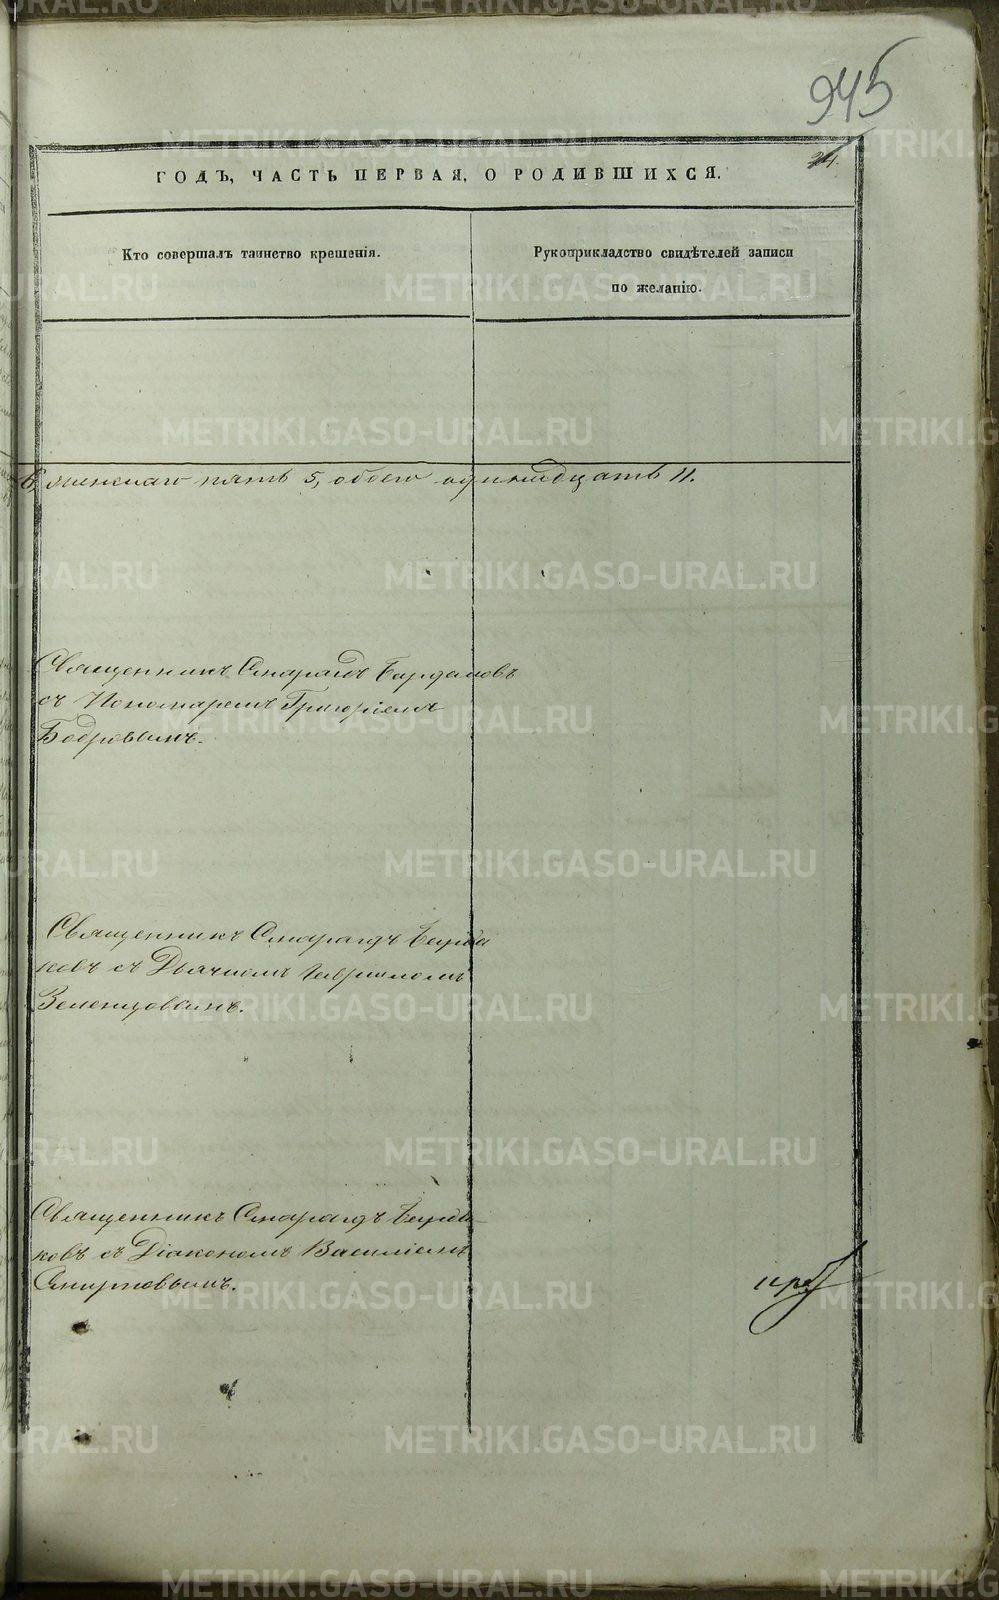 945
24.
ГОДЪ, ЧАСТЬ ПЕРВАЯ, О РОДИВШИХСЯ.
Кто совершалъ таинство крещенія.
Рукоприкладство свидѣтелей записи
по желанію.
6, женскаго пять 5, обоего одиннадцать 11.
Священникъ Смарагдъ
съ Пономаремъ Григоріемъ
Бодровымъ.
Священникъ Смарагдъ
ковъ съ Дьячкомъ Гавриломъ
Зеленцовымъ.
Священникъ Смарагдъ
ковъ съ Діакономъ Василіемъ
Смирновымъ.
METRIKI.GASO-URAL.RU